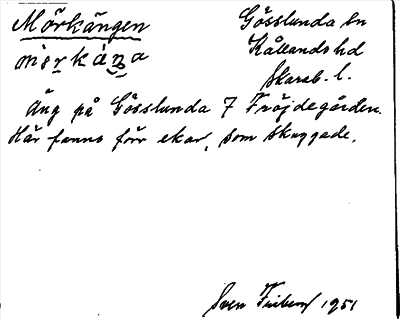 Mörkängen Gösslunda sn
mörkä̀ŋa Kållands hd
Skarab. l.
Äng på Gösslunda 7 Fröjdegården.
Här fanns förr ekar, som skuggade.
Sven 1951